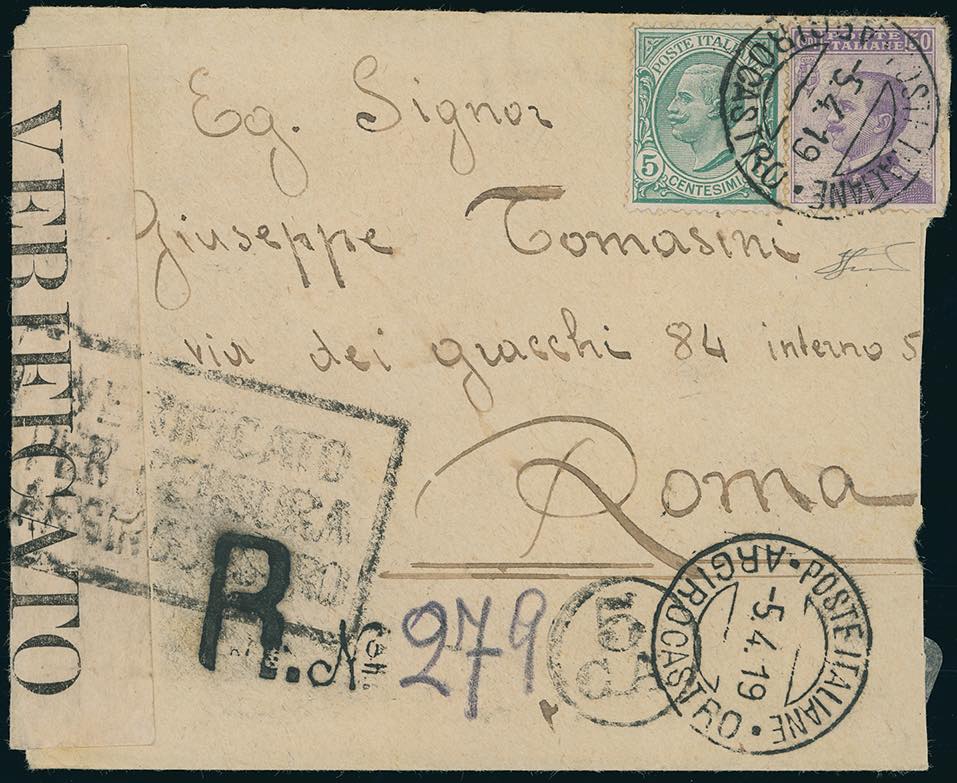 Eg. Signor
Giuseppe Tomasini
via dei gracchi 84 interno 5
Roma
POSTE ITALIANE
5
CENTESIMI
POSTE ITALIANE
50
POSTE ITALIANE • ARGIROCASTRO •
-5.4.19
VERIFICATO
VERIFICATO
PER CENSURA
R. No
279
5
POSTE ITALIANE • ARGIROCASTRO •
-5.4.19